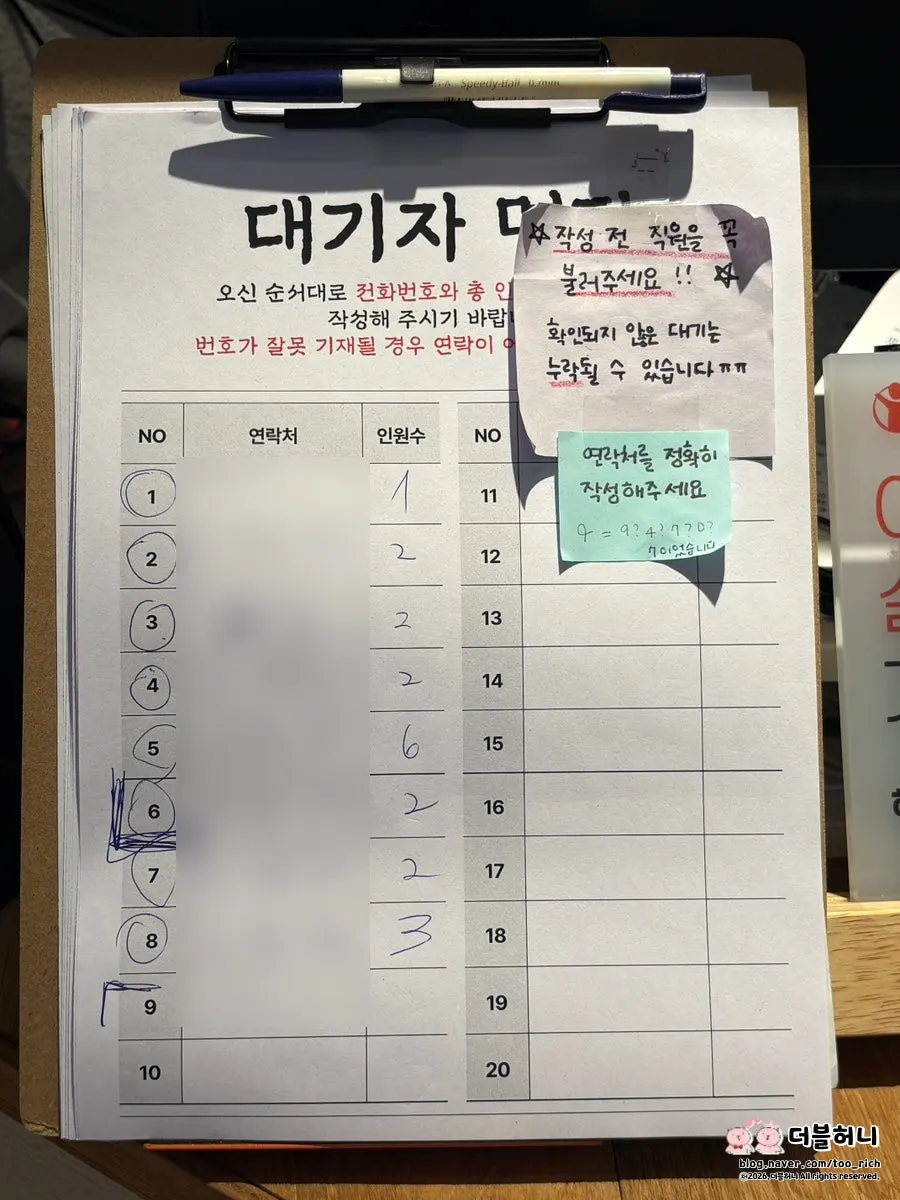 Speedy-Ball 0.7mm
대기자
오신 순서대로 전화번호와 총 인
작성해 주시기 바랍
번호가 잘못 기재될 경우 연락이
☆작성 전 직원을 꼭
불러주세요 !! ☆
확인되지 않은 대기는
누락될 수 있습니다ㅠㅠ
연락처를 정확히
작성해주세요
= 9? 4? 7? 0?
7이었습니다
NO 연락처 인원수 NO
1 1 11
2 2 12
3 2 13
4 2 14
5 6 15
6 2 16
7 2 17
8 3 18
9 19
10 20
더블허니
blog.naver.com/too_rich
©2026. 더블허니 All rights reserved.